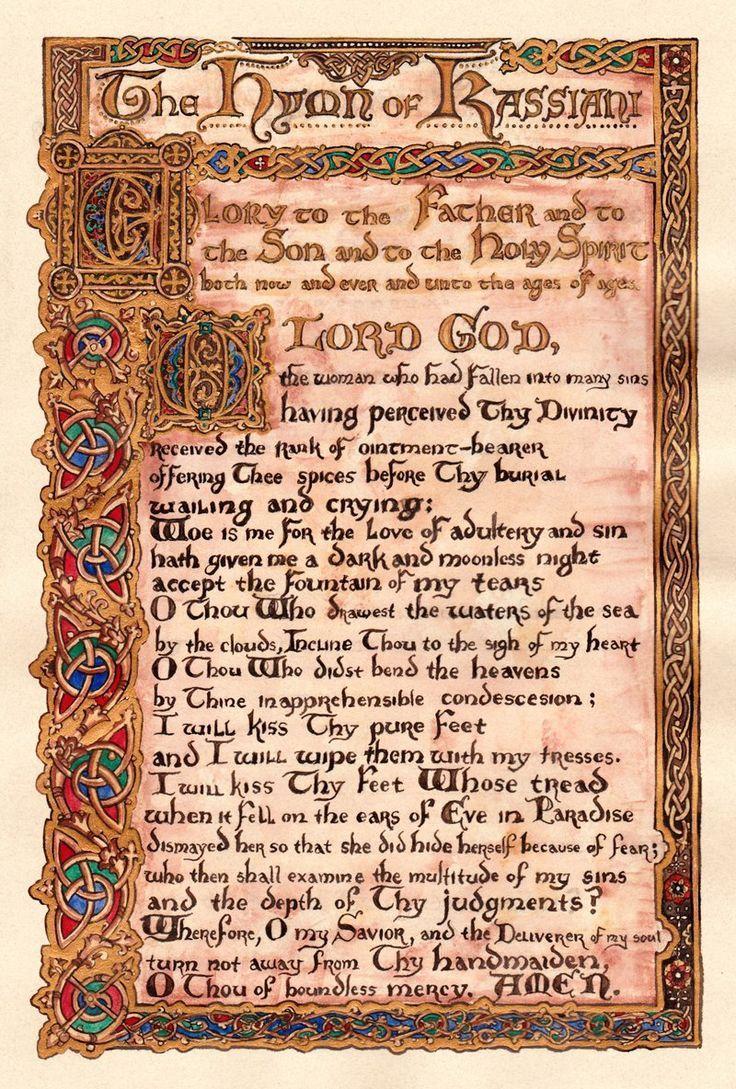 The Hymn of Kassiani
Glory to the Father and to
the Son and to the Holy Spirit
both now and ever and unto the ages of ages.
O LORD GOD,
the woman who had fallen into many sins
having perceived Thy Divinity
received the rank of ointment-bearer
offering Thee spices before Thy burial
wailing and crying:
Woe is me for the love of adultery and sin
hath given me a dark and moonless night
accept the fountain of my tears
O Thou Who drawest the waters of the sea
by the clouds, Incline Thou to the sigh of my heart
O Thou Who didst bend the heavens
by Thine inapprehensible condescesion;
I will kiss Thy pure feet
and I will wipe them with my tresses.
I will kiss Thy feet Whose tread
when it fell on the ears of Eve in Paradise
dismayed her so that she did hide herself because of fear;
who then shall examine the multitude of my sins
and the depth of Thy judgments?
Wherefore, O my Savior, and the Deliverer of my soul
turn not away from Thy handmaiden,
O Thou of boundless mercy. AMEN.